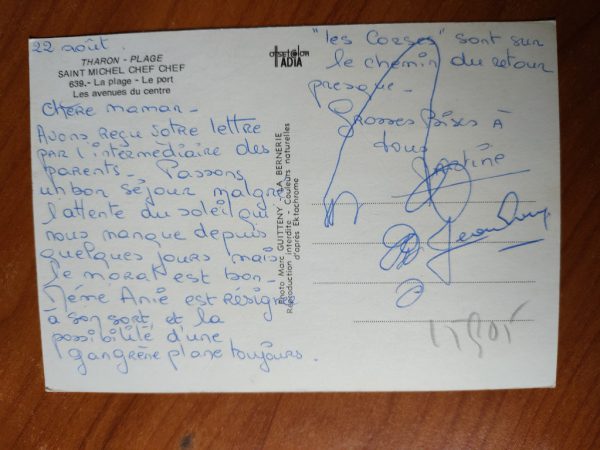 22 août.
THARON - PLAGE
SAINT MICHEL CHEF CHEF
639.- La plage - Le port
Les avenues du centre
Chère maman -
Avons reçu votre lettre
par l'intermédiaire des
parents - Passons
un bon séjour malgré
l'attente du soleil qui
nous manque depuis
quelques jours mais
le moral est bon -
Même Anie est résigné
à son sort et la
possibilité d'une
gangrène plane toujours.
ADIA
Photo Marc GUITTENY - LA BERNERIE
Reproduction interdite - Couleurs naturelles
d'après Ektachrome
"les Corses" sont sur
le chemin du retour
presque -
Grosses bises à
tous